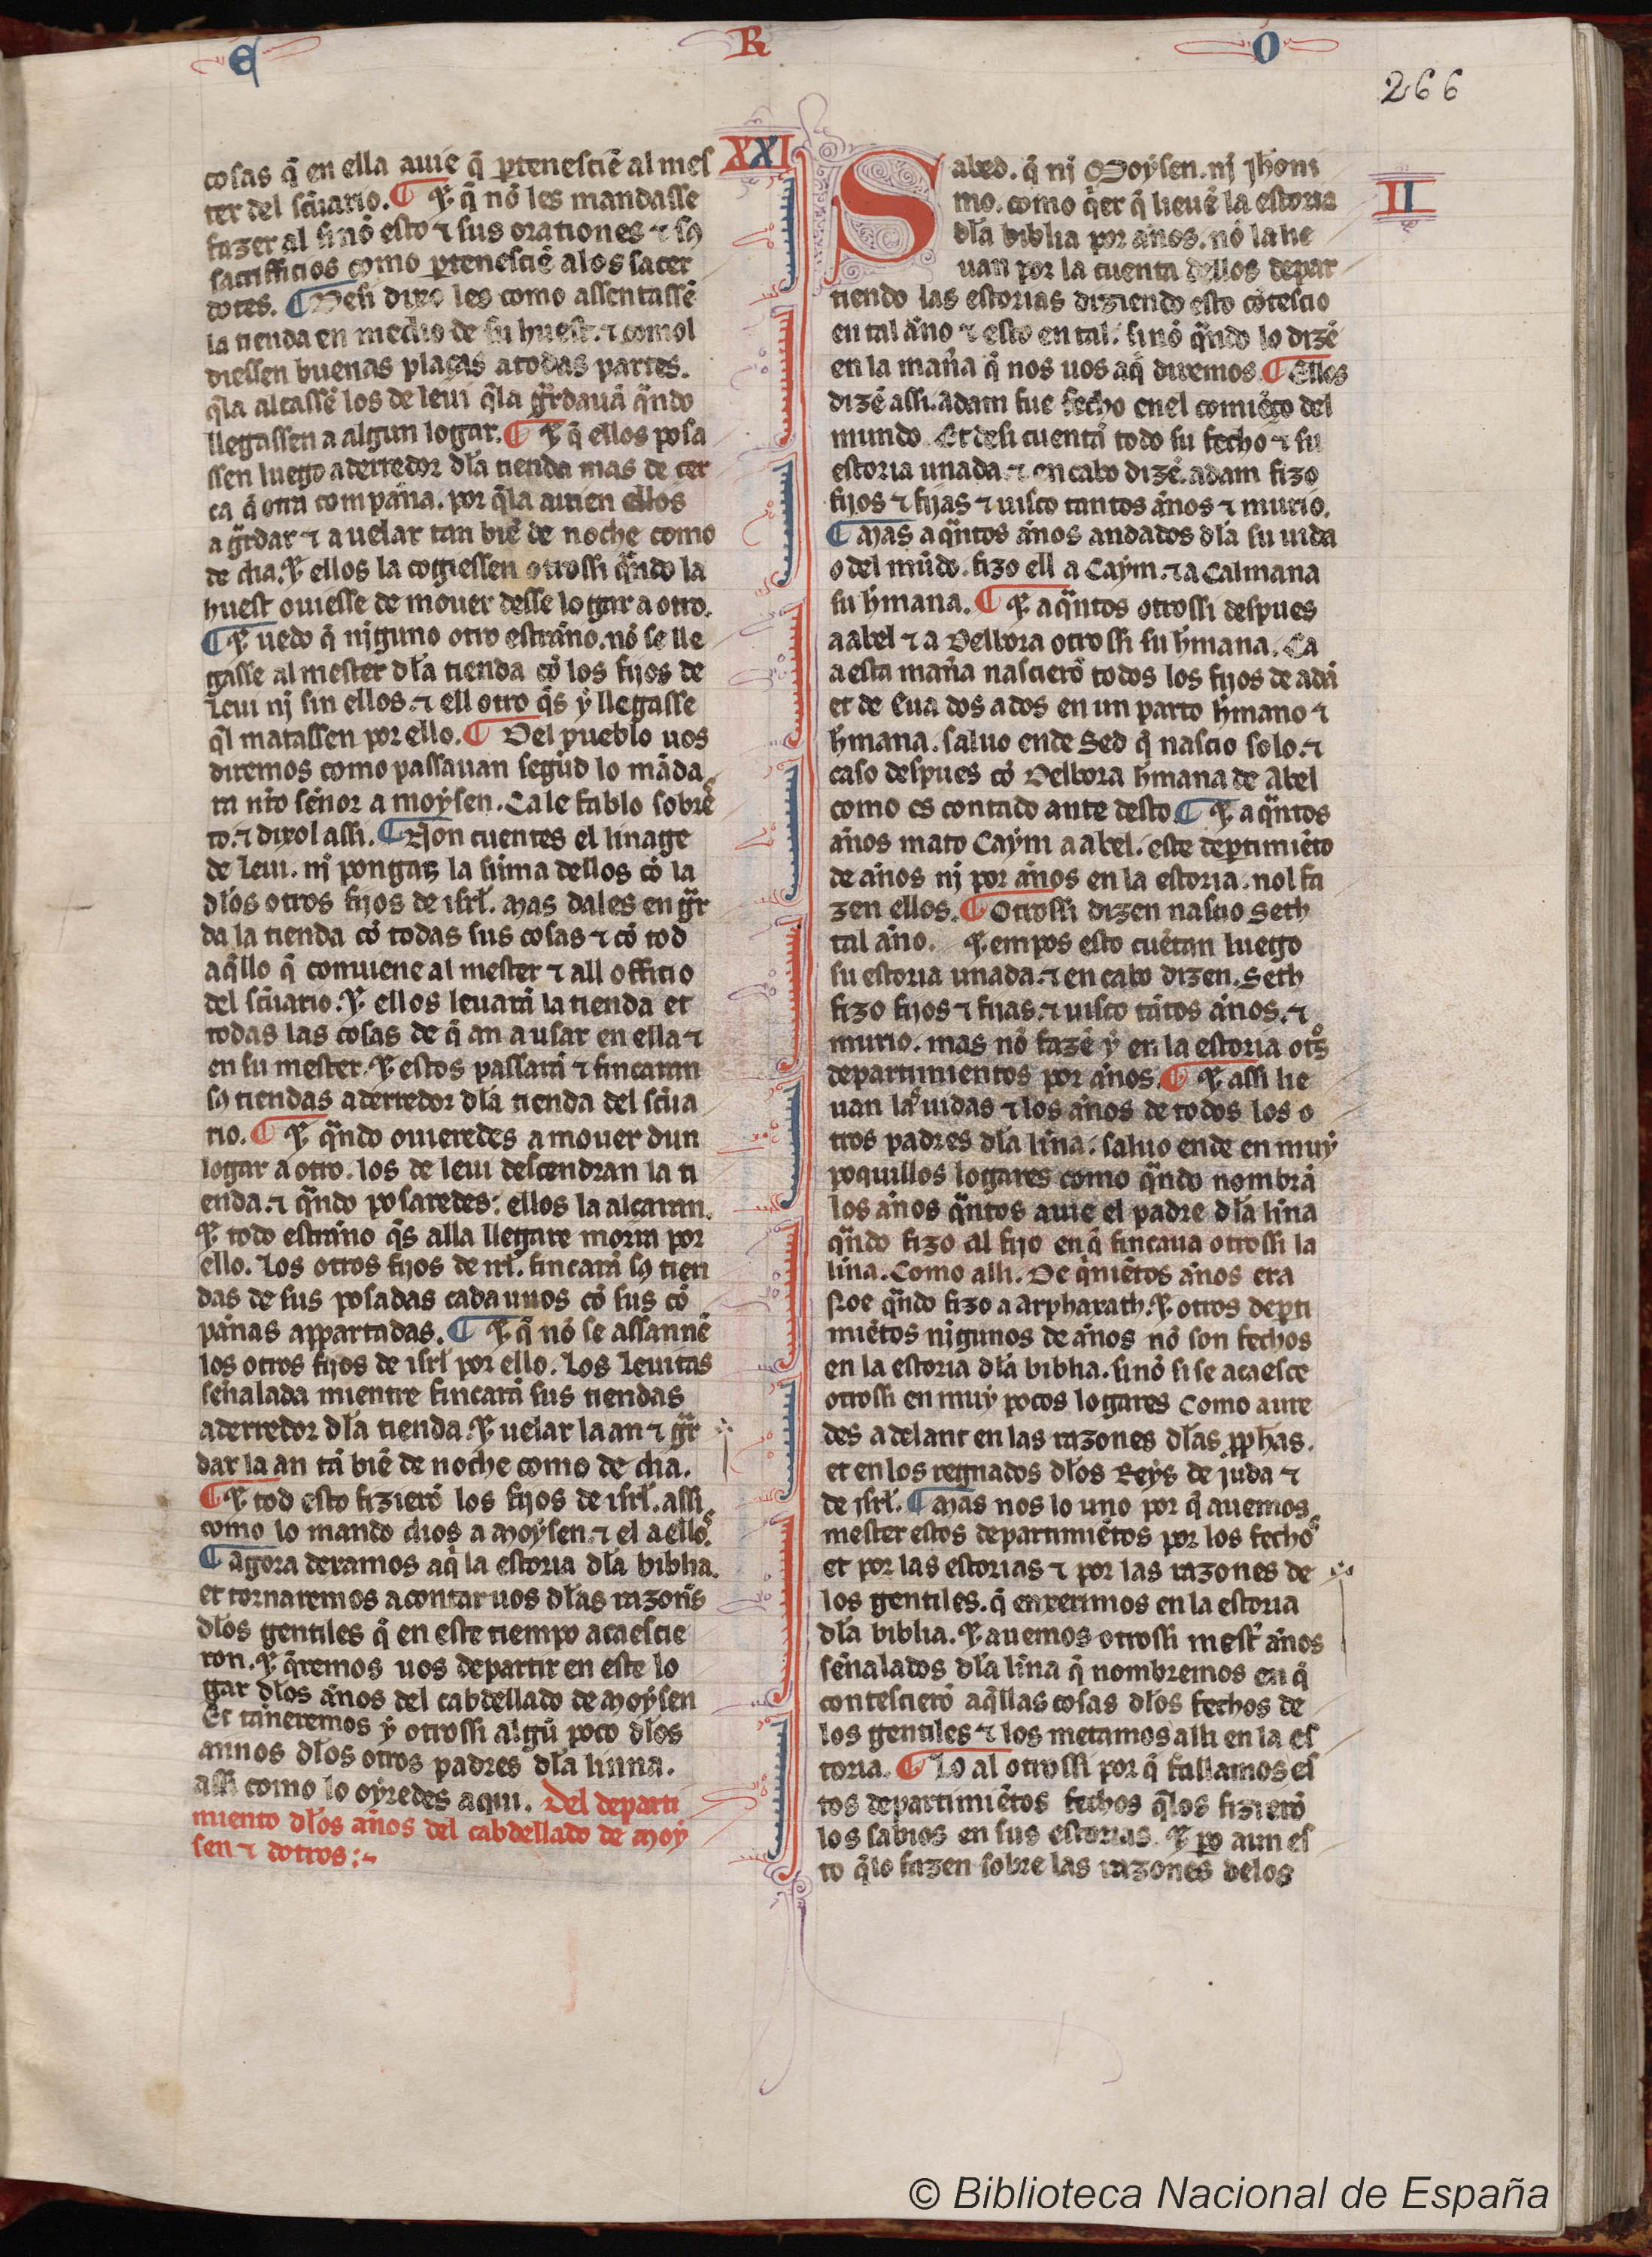 E R O
266
cosas q̃ en ella auie q̃ ꝑtenesciẽ al mes
ter del sc̃uario. ¶ ⁊ q̃ nõ les mandasse
fazer al si nõ esto ⁊ sus orationes ⁊ sꝯ
sacrifficios como ꝑtenesciẽ a los sacer
dotes. ¶ Desi dixo les como assentassẽ
la tienda en medio de su huest. ⁊ comol
diessen buenas plaças a todas partes.
q̃la alçassẽ los de leui q̃la gͣrdauã qͣndo
llegassen a algun logar. ¶ ⁊ q̃ ellos posa
ssen luego aderredor dl̃a tienda mas de cer
ca q̃ otra compãna. por q̃la auien ellos
a gͣrdar ⁊ a uelar tan biẽ de noche como
de dia. ⁊ ellos la cogiessen otrossi qͣndo la
huest ouiesse de mouer desse logar a otro.
¶ ⁊ uedo q̃ nįguno otro estrãno. nõ se lle
gasse al mester dl̃a tienda cõ los fijos de
Leui nj sin ellos. ⁊ ell otro q̃s ẏ llegasse
q̃l matassen por ello. ¶ Del pueblo uos
diremos como passauan segũd lo mãda
ra nr̃o sẽnor a moẏsen. Cale fablo sobrẽ
to. ⁊ dixol assi. ¶ Non cuentes el linage
de Leui. nj pongas la sũma dellos cõ la
dl̃os otros fijos de isrl̃. Mas dales en gͣr
da la tienda cõ todas sus cosas ⁊ cõ tod
aq̃llo q̃ conuiene al mester ⁊ all officio
del sc̃uario. ⁊ ellos leuarã la tienda et
todas las cosas de q̃ an a usar en ella ⁊
en su mester. ⁊ estos passarã ⁊ fincaran
sꝯ tiendas aderredor dl̃a tienda del sc̃ua
rio. ¶ ⁊ qͣndo ouieredes a mouer dun
logar a otro. los de leui descendran la ti
enda. ⁊ qͣndo posaredes: ellos la alçaran.
⁊ todo estrãno q̃s alla llegare morra por
ello. Los otros fijos de irl̃. fincarã sꝯ tien
das de sus posadas cada unos cõ sus cõ
pãnas appartadas. ¶ ⁊ q̃ nõ se assannẽ
los otros fijos de isrl̃ por ello. Los Leuitas
señalada mientre fincarã sus tiendas
aderredor dl̃a tienda. ⁊ uelar la an ⁊ gͣr
dar la an tã biẽ de noche como de dia.
¶ ⁊ tod esto fizierõ los fijos de isrl̃. assi
como lo mando dios a Moẏsen. ⁊ el a ellos.
¶ Agora dexamos aq̃ la estoria dl̃a biblia.
et tornaremos a contar uos dl̃as razon̄s
dl̃os gentiles q̃ en este tiempo acaescie
ron. ⁊ q̃remos uos departir en este lo
gar dl̃os ãnos del cabdellado de Moẏsen
Et tãneremos ẏ otrossi algũ poco dl̃os
annos dl̃os otros padres dl̃a linna.
assi como lo oẏredes aqui. Del departi
miento dl̃os ãnos del cabdellado de Moẏ
sen ⁊ dotros:~
XXI
Sabed. q̃ nj Moẏsen. nj Jh̃oni
mo. como q̃er q̃ lieuẽ la estoria
dl̃a biblia por ãnos. nõ la lie
uan por la cuenta dellos depar
tiendo las estorias diziendo esto cõtescio
en tal ãno ⁊ esto en tal. sinõ qͣndo lo dizẽ
en la mañ̃a q̃ nos uos aq̃ diremos. ¶ Ellos
dizẽ assi. Adam fue fecho en el comiẽço del
mundo. Et desi cuentã todo su fecho ⁊ su
estoria unada. ⁊ en cabo dizẽ. Adam fizo
fijos ⁊ fijas ⁊ uisco tantos ãnos ⁊ murio.
¶ Mas a qͣntos ãnos andados dl̃a su uida
o del mũdo. fizo ell a Caẏm. ⁊ a Calmana
su h̃mana. ¶ ⁊ a qͣntos otrossi despues
a abel ⁊ a Delbora otrossi su h̃mana. Ca
a esta mañ̃a nascierõ todos los fijos de adã
et de Eua dos a dos en un parto h̃mano ⁊
h̃mana. saluo ende Sed q̃ nascio solo. ⁊
caso despues cõ Delbora h̃mana de Abel
como es contado ante desto. ¶ ⁊ a qͣntos
ãnos mato Caẏm a abel. este deꝑtimiẽto
de ãnos nj por ãnos en la estoria. nol fa
zen ellos. ¶ Otrossi dizen nascio Seth
tal ãno. ⁊ empos esto cuẽtan luego
su estoria unada. ⁊ en cabo dizen. Seth
fizo fijos ⁊ fijas. ⁊ uisco tãtos ãnos. ⁊
murio. mas nõ fazẽ ẏ en la estoria otͦs
departimientos por ãnos. ¶ ⁊ assi lie
uan las uidas ⁊ los ãnos de todos los o
tros padres dl̃a lĩna. saluo ende en muẏ
poquillos logares como qͣndo nombrã
los ãnos qͣntos auie el padre dl̃a lĩna
qͣndo fizo al fijo en q̃ fincaua otrossi la
lĩna. Como alli. De q̃niẽtos ãnos era
Noe qͣndo fizo a Arpharath. ⁊ otros deꝑti
miẽtos nįgunos de ãnos nõ son fechos
en la estoria dl̃a biblia. sinõ si se acaesce
otrossi en muẏ pocos logares Como aure
des adelant en las razones dl̃as ꝓph̃as.
et en los regnados dl̃os Reẏs de juda ⁊
de isrl̃. ¶ Mas nos lo uno por q̃ auemos
mester estos departimiẽtos por los fechos
et por las estorias ⁊ por las razones de
los gentiles. q̃ enxerimos en la estoria
dl̃a biblia. ⁊ auemos otrossi mest̃ ãnos
sẽnalados dl̃a lĩna q̃ nombremos en q̃
contescierõ aq̃llas cosas dl̃os fechos de
los gentiles ⁊ los metamos alli en la es
toria. ¶ Lo al otrossi por q̃ fallamos es
tos departimiẽtos fechos q̃los fizierõ
los sabios en sus estorias. ⁊ ꝑo aun es
to q̃lo fazen sobre las razones delos
II
© Biblioteca Nacional de España